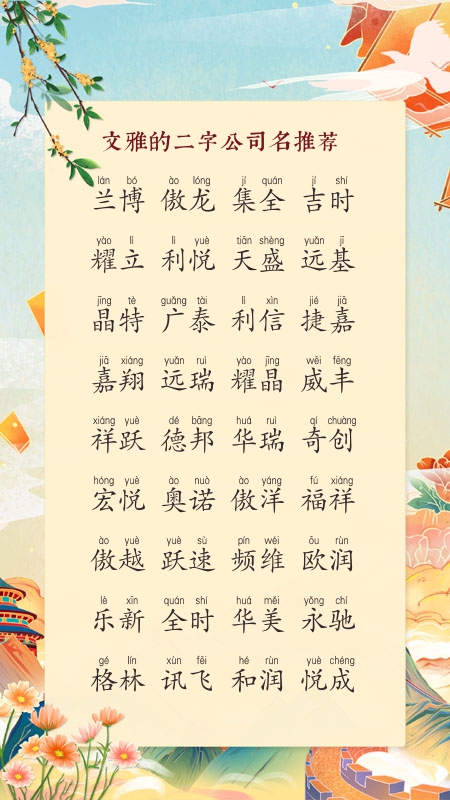 文雅的二字公司名推荐
lán bó ào lóng jí quán jí shí
兰博 傲龙 集全 吉时
yào lì lì yuè tiān shèng yuǎn jī
耀立 利悦 天盛 远基
jīng tè guǎng tài lì xìn jié jiā
晶特 广泰 利信 捷嘉
jiā xiáng yuǎn ruì yào jīng wēi fēng
嘉翔 远瑞 耀晶 威丰
xiáng yuè dé bāng huá ruì qí chuàng
祥跃 德邦 华瑞 奇创
hóng yuè ào nuò ào yáng fú xiáng
宏悦 奥诺 傲洋 福祥
ào yuè yuè sù pín wéi ōu rùn
傲越 跃速 频维 欧润
lè xīn quán shí huá měi yǒng chí
乐新 全时 华美 永驰
gé lín xùn fēi hé rùn yuè chéng
格林 讯飞 和润 悦成